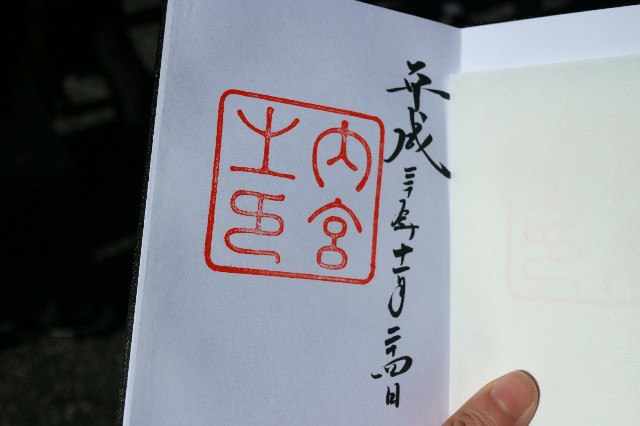 平成 年十一月二十四日
内宮
之印